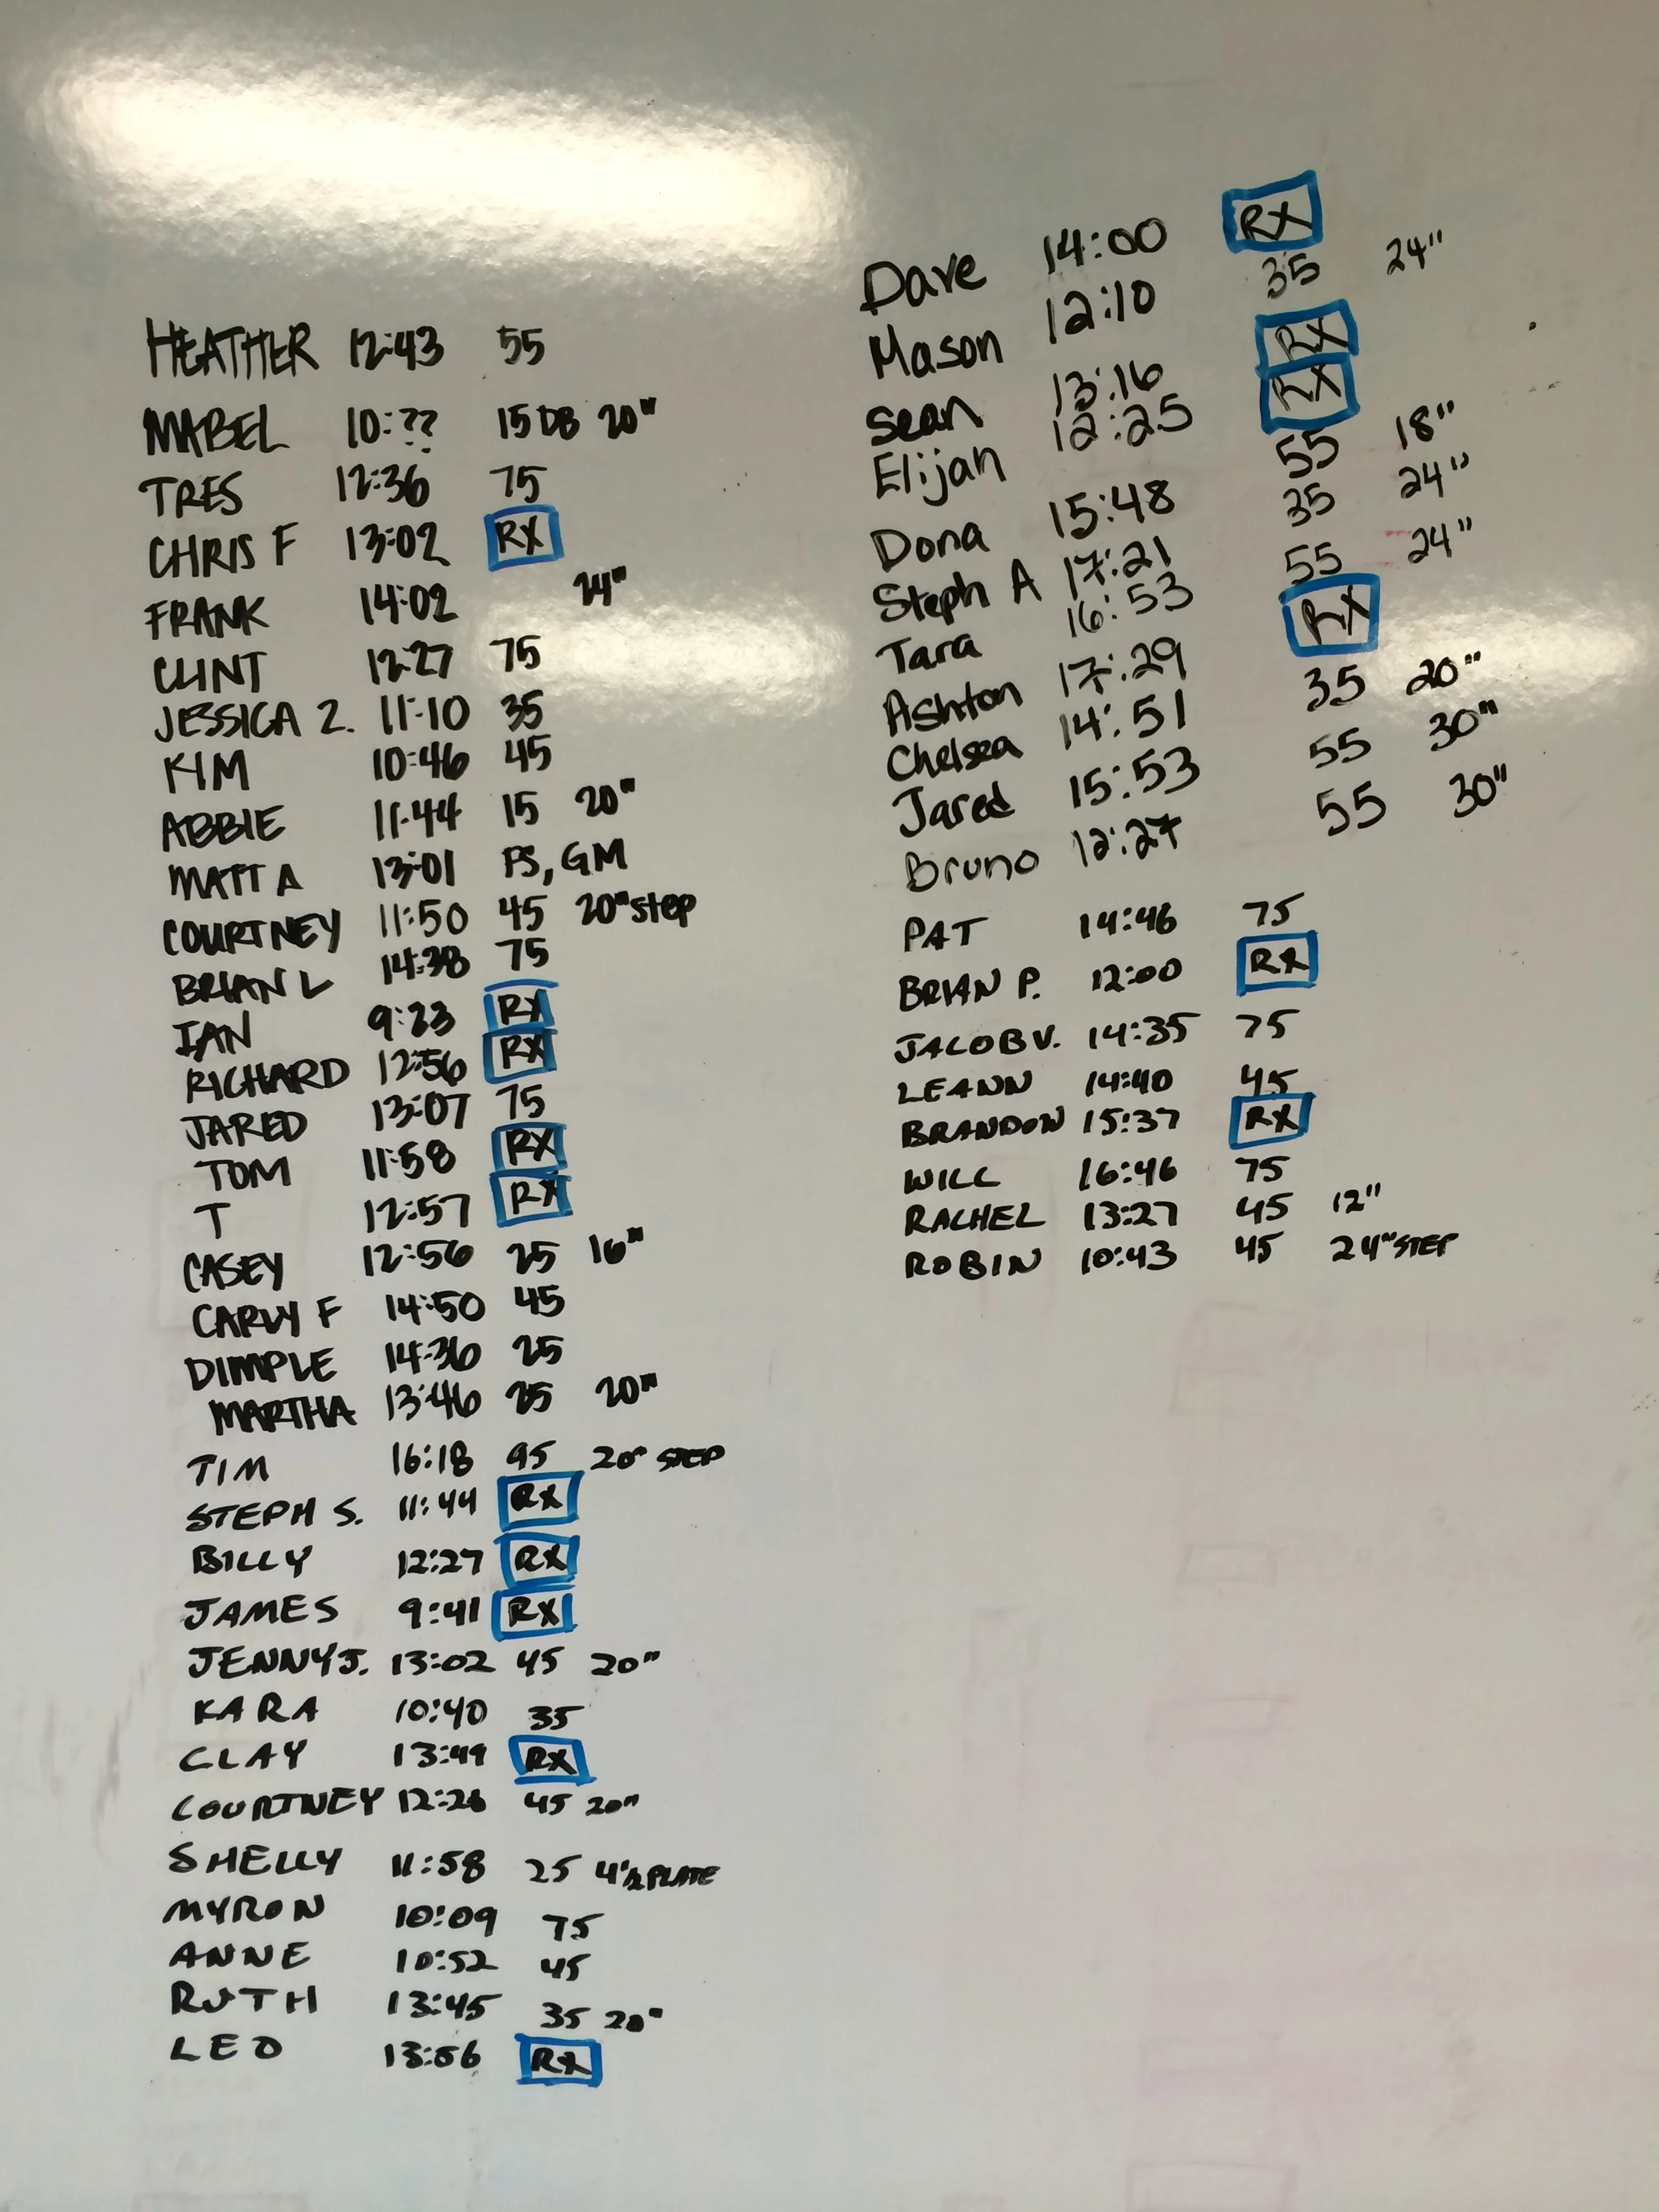 HEATHER 12:43 55
MABEL 10:?? 15 DB 20"
TRES 12:36 75
CHRIS F 13:02 RX
FRANK 14:02 24"
CLINT 12:27 75
JESSICA Z. 11:10 35
KIM 10:46 45
ABBIE 11:44 15 20"
MATT A 13:01 PS, GM
COURTNEY 11:50 45 20" step
BRIAN L 14:38 75
IAN 9:23 RX
RICHARD 12:56 RX
JARED 13:07 75
TOM 11:58 RX
T 12:57 RX
CASEY 12:56 25 16"
CARLY F 14:50 45
DIMPLE 14:36 25
MARTHA 13:46 25 20"
TIM 16:18 95 20" STEP
STEPH S. 11:44 RX
BILLY 12:27 RX
JAMES 9:41 RX
JENNY J. 13:02 45 20"
KARA 10:40 35
CLAY 13:49 RX
COURTNEY 12:26 45 20"
SHELLY 11:58 25 4½ PLATE
MYRON 10:09 75
ANNE 10:52 45
RUTH 13:45 35 20"
LEO 13:56 RX
Dave 14:00 RX
Mason 12:10 35 24"
Sean 13:16 RX
Elijah 12:25 RX
Dona 15:48 55 18"
Steph A 17:21 35 24"
Tara 16:53 55 24"
Ashton 17:29 RX
Chelsea 14:51 35 20"
Jared 15:53 55 30"
Bruno 12:27 55 30"
PAT 14:46 75
BRIAN P. 12:00 RX
JACOB V. 14:35 75
LEANN 14:40 45
BRANDON 15:37 RX
WILL 16:46 75
RACHEL 13:27 45 12"
ROBIN 10:43 45 24" STEP